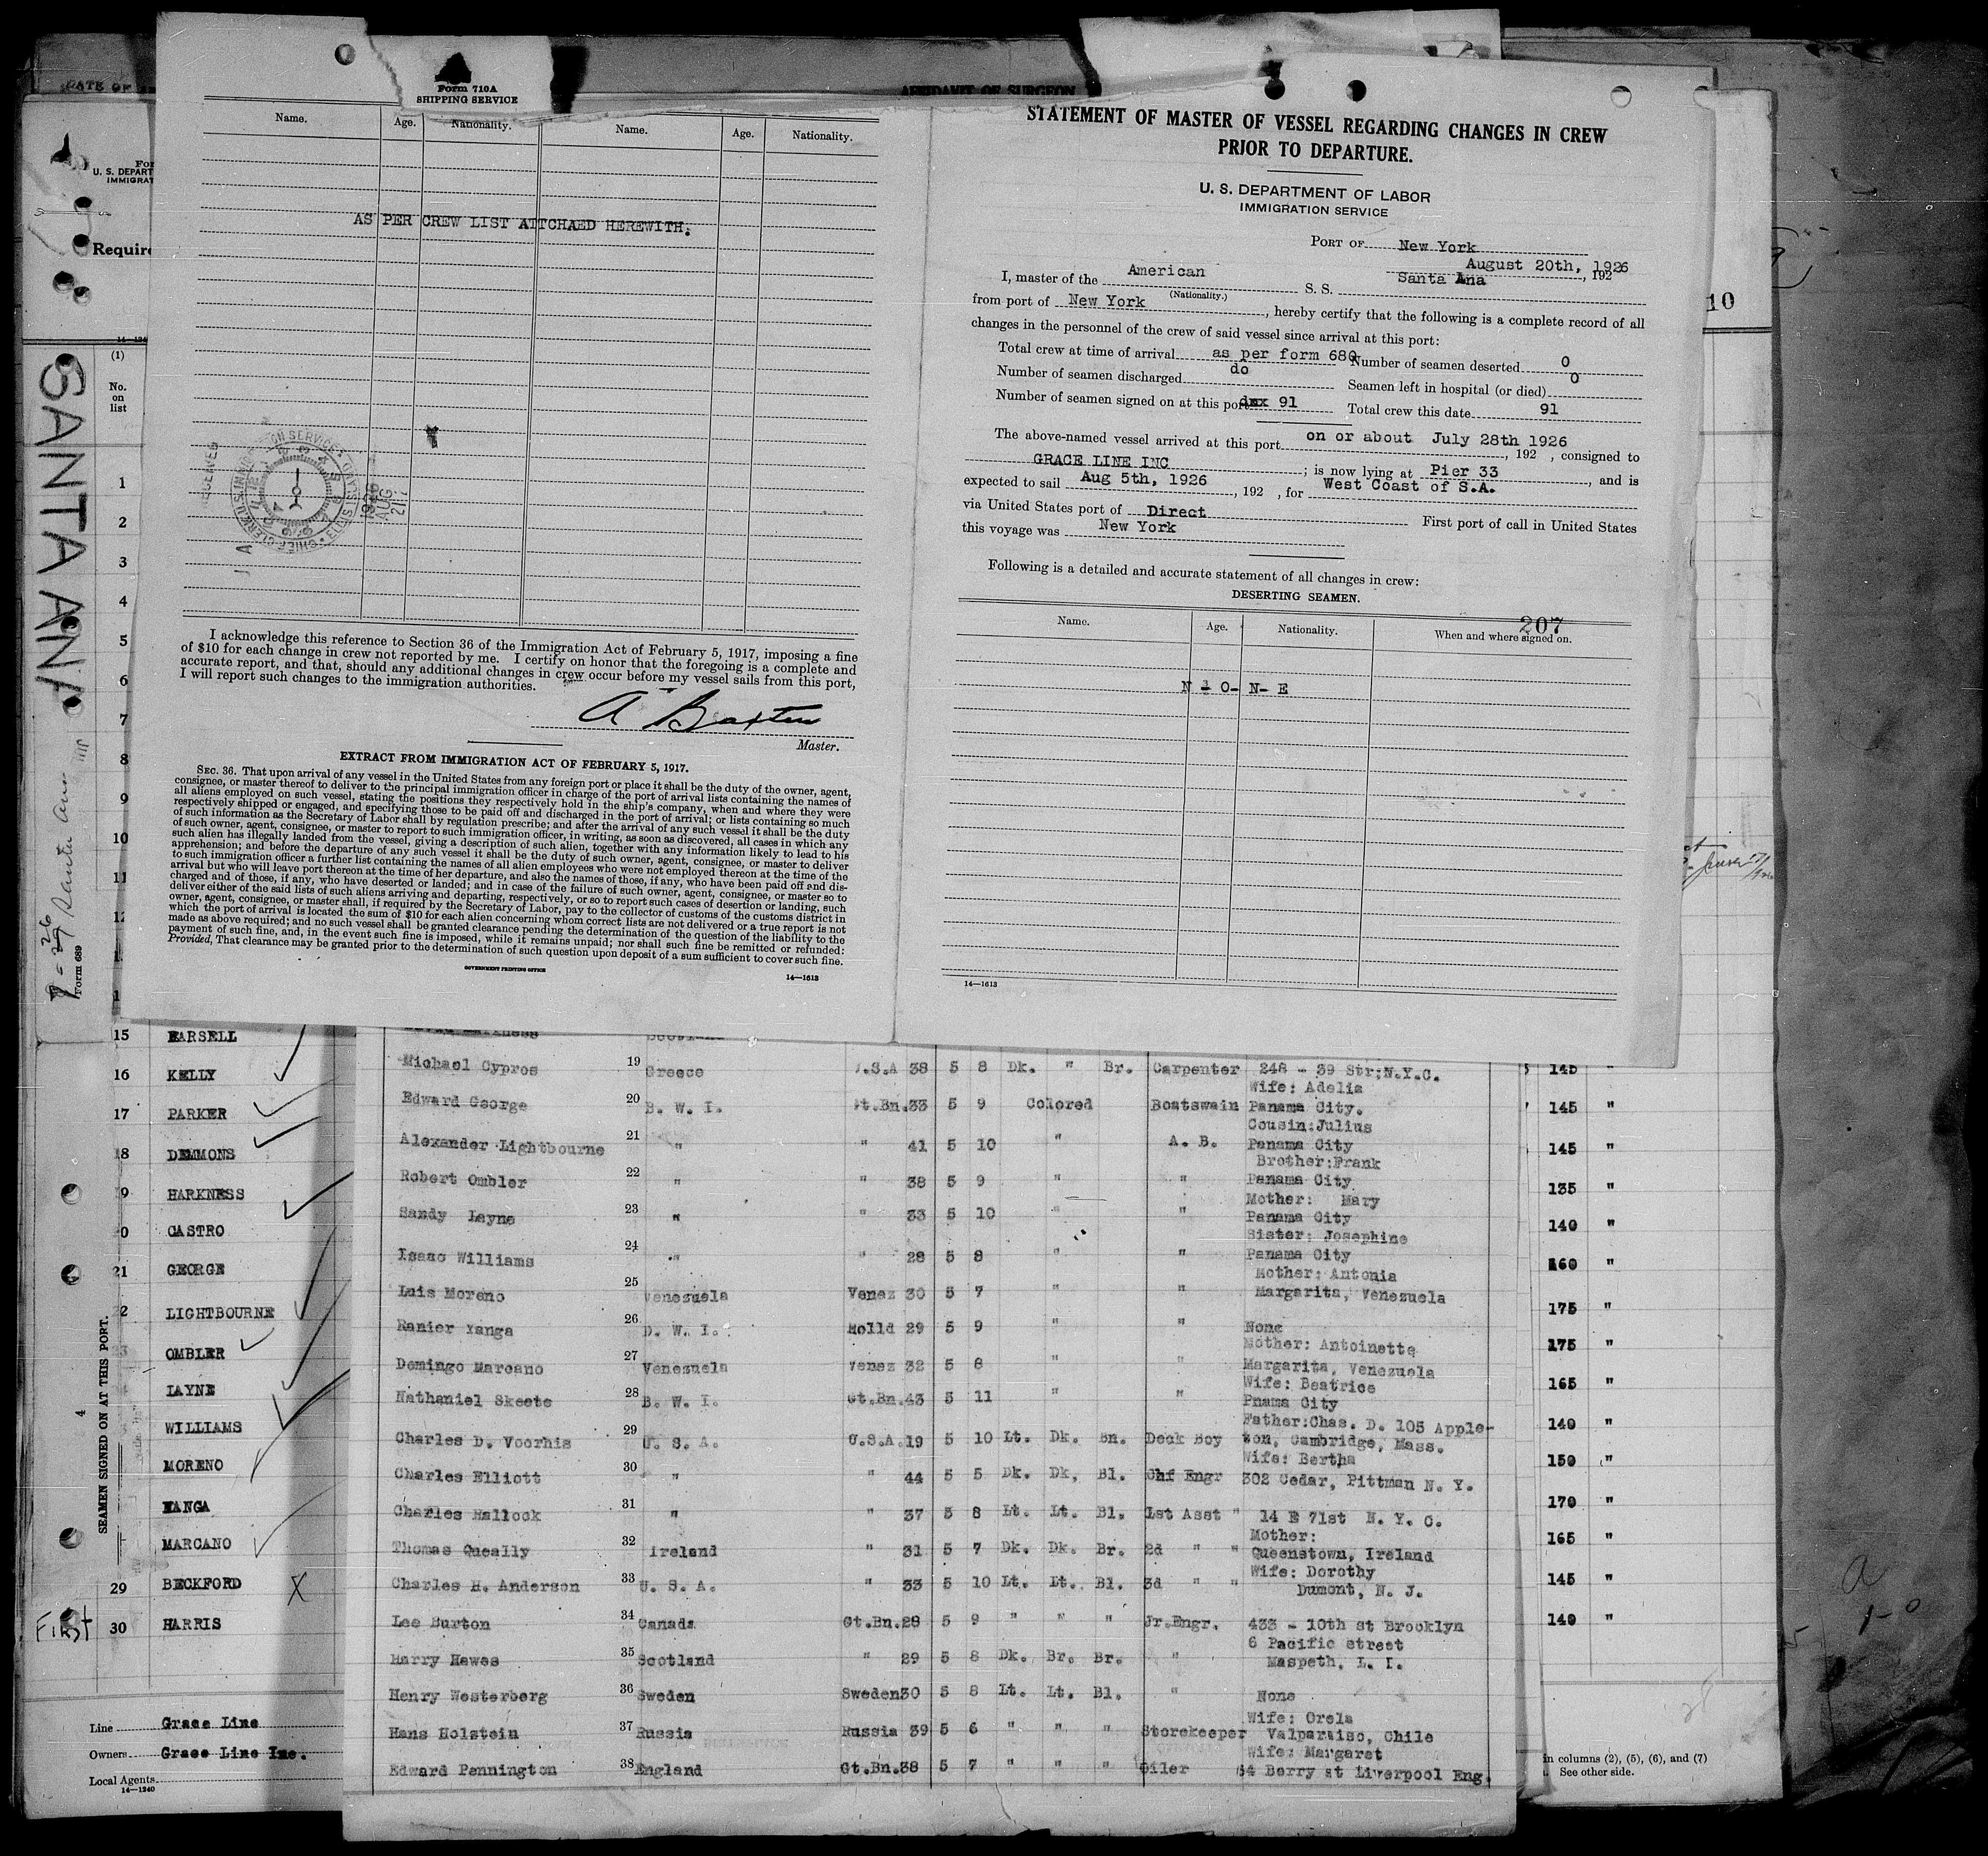 DATE OF
AFFIDAVIT OF SURGEON
Form 710A
SHIPPING SERVICE
U. S. DEPART
IMMIGRAT
Require
14—124
(1)
No.
on
list
1
2
3
4
5
6
7
8
9
10
11
SANTA ANA
Form 689
10
Name. Age. Nationality. Name. Age. Nationality.
AS PER CREW LIST ATTCHAED HEREWITH.
RECEIVED
1926
AUG
21
I acknowledge this reference to Section 36 of the Immigration Act of February 5, 1917, imposing a fine
of $10 for each change in crew not reported by me. I certify on honor that the foregoing is a complete and
accurate report, and that, should any additional changes in crew occur before my vessel sails from this port,
I will report such changes to the immigration authorities.
A Baxter
Master.
EXTRACT FROM IMMIGRATION ACT OF FEBRUARY 5, 1917.
SEC. 36. That upon arrival of any vessel in the United States from any foreign port or place it shall be the duty of the owner, agent,
consignee, or master thereof to deliver to the principal immigration officer in charge of the port of arrival lists containing the names of
all aliens employed on such vessel, stating the positions they respectively hold in the ship's company, when and where they were
respectively shipped or engaged, and specifying those to be paid off and discharged in the port of arrival; or lists containing so much
of such information as the Secretary of Labor shall by regulation prescribe; and after the arrival of any such vessel it shall be the duty
of such owner, agent, consignee, or master to report to such immigration officer, in writing, as soon as discovered, all cases in which any
such alien has illegally landed from the vessel, giving a description of such alien, together with any information likely to lead to his
apprehension; and before the departure of any such vessel it shall be the duty of such owner, agent, consignee, or master to deliver
to such immigration officer a further list containing the names of all alien employees who were not employed thereon at the time of the
arrival but who will leave port thereon at the time of her departure, and also the names of those, if any, who have been paid off and dis-
charged and of those, if any, who have deserted or landed; and in case of the failure of such owner, agent, consignee, or master so to
deliver either of the said lists of such aliens arriving and departing, respectively, or so to report such cases of desertion or landing, such
owner, agent, consignee, or master shall, if required by the Secretary of Labor, pay to the collector of customs of the customs district in
which the port of arrival is located the sum of $10 for each alien concerning whom correct lists are not delivered or a true report is not
made as above required; and no such vessel shall be granted clearance pending the determination of the question of the liability to the
payment of such fine, and, in the event such fine is imposed, while it remains unpaid; nor shall such fine be remitted or refunded:
Provided, That clearance may be granted prior to the determination of such question upon deposit of a sum sufficient to cover such fine.
GOVERNMENT PRINTING OFFICE
14—1613
STATEMENT OF MASTER OF VESSEL REGARDING CHANGES IN CREW
PRIOR TO DEPARTURE.
U. S. DEPARTMENT OF LABOR
IMMIGRATION SERVICE
PORT OF New York
August 20th, 1926, 192
I, master of the American S. S. Santa Ana
(Nationality.)
from port of New York, hereby certify that the following is a complete record of all
changes in the personnel of the crew of said vessel since arrival at this port:
Total crew at time of arrival as per form 680 Number of seamen deserted 0
Number of seamen discharged do Seamen left in hospital (or died) 0
Number of seamen signed on at this port 91 Total crew this date 91
The above-named vessel arrived at this port on or about July 28th 1926, 192 , consigned to
GRACE LINE INC ; is now lying at Pier 33, and is
expected to sail Aug 5th, 1926, 192 , for West Coast of S.A.
via United States port of Direct First port of call in United States
this voyage was New York
Following is a detailed and accurate statement of all changes in crew:
DESERTING SEAMEN.
207
Name. Age. Nationality. When and where signed on.
N - O- N- E
14—1613
15 EARSELL
16 KELLY
17 PARKER
18 DEMMONS
9 HARKNESS
0 CASTRO
21 GEORGE
22 LIGHTBOURNE
23 OMBLER
LAYNE
WILLIAMS
MORENO
YANGA
MARCANO
29 BECKFORD X
First 30 HARRIS
SEAMEN SIGNED ON AT THIS PORT.
4
Line Grace Line
Owners Grace Line Inc.
Local Agents
14—1240
Michael Cypros 19 Greece U.S.A 38 5 8 Dk. " Br. Carpenter 248 - 39 Str;N.Y.C.
Wife: Adelia
Edward George 20 B. W. I. Gt.Bn.33 5 9 Colored Boatswain Panama City.
Cousin:Julius
Alexander Lightbourne 21 " " 41 5 10 " A. B. Panama City
Brother:Frank
Robert Ombler 22 " " 38 5 9 " " Panama City
Mother: Mary
Sandy Layne 23 " " 33 5 10 " " Panama City
Sister: Josephine
Isaac Williams 24 " " 28 5 8 " " Panama City
Mother: Antonia
Luis Moreno 25 Venezuela Venez 30 5 7 " " Margarita, Venezuela
Ranier Yanga 26 D. W. I. Holld 29 5 9 " " None
Mother: Antoinette
Domingo Marcano 27 Venezuela Venez 32 5 8 " " Margarita, Venezuela
Wife: Beatrice
Nathaniel Skeete 28 B. W. I. Gt.Bn.43 5 11 " " Pnama City
Father:Chas. D. 105 Apple-
Charles D. Voorhis 29 U. S. A. U.S.A.19 5 10 Lt. Dk. Bn. Deck Boy ton, Cambridge, Mass.
Wife: Bertha
Charles Elliott 30 " " 44 5 5 Dk. Dk, Bl. Chf Engr 302 Cedar, Pittman N. Y.
Charles Hallock 31 " " 37 5 8 Lt. Lt. Bl. 1st Asst " 14 E 71st N. Y. C.
Mother:
Thomas Queally 32 Ireland " 31 5 7 Dk. Dk. Br. 2d " " Queenstown, Ireland
Wife: Dorothy
Charles H. Anderson 33 U. S. A. " 33 5 10 Lt. Lt. Bl. 3d " " Dumont, N. J.
Lee Burton 34 Canada Gt.Bn.28 5 9 " " " Jr.Engr. 433 - 10th st Brooklyn
6 Pacific street
Harry Hawes 35 Scotland " 29 5 8 Dk. Br. Br. " Maspeth, L. I.
Henry Westerberg 36 Sweden Sweden30 5 8 Lt. Lt. Bl. " None
Wife: Orela
Hans Holstein 37 Russia Russia 39 5 6 " " " Storekeeper Valparaiso, Chile
Wife: Margaret
Edward Pennington 38 England Gt.Bn.38 5 7 " " " Oiler 64 Berry st Liverpool Eng.
145 "
145 "
145 "
135 "
140 "
160 "
175 "
175 "
165 "
140 "
150 "
170 "
165 "
145 "
140 "
in columns (2), (5), (6), and (7)
See other side.